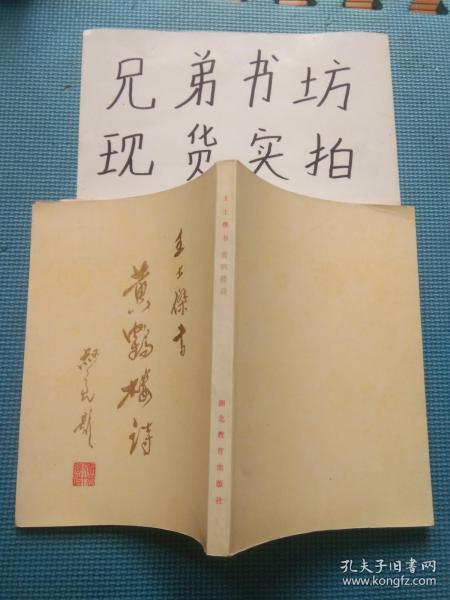 兄弟书坊
现货实拍
王士傑书
黄鹤楼诗
题
王士傑书 黄鹤楼诗
湖北教育出版社
孔夫子旧书网
www.kongfz.com